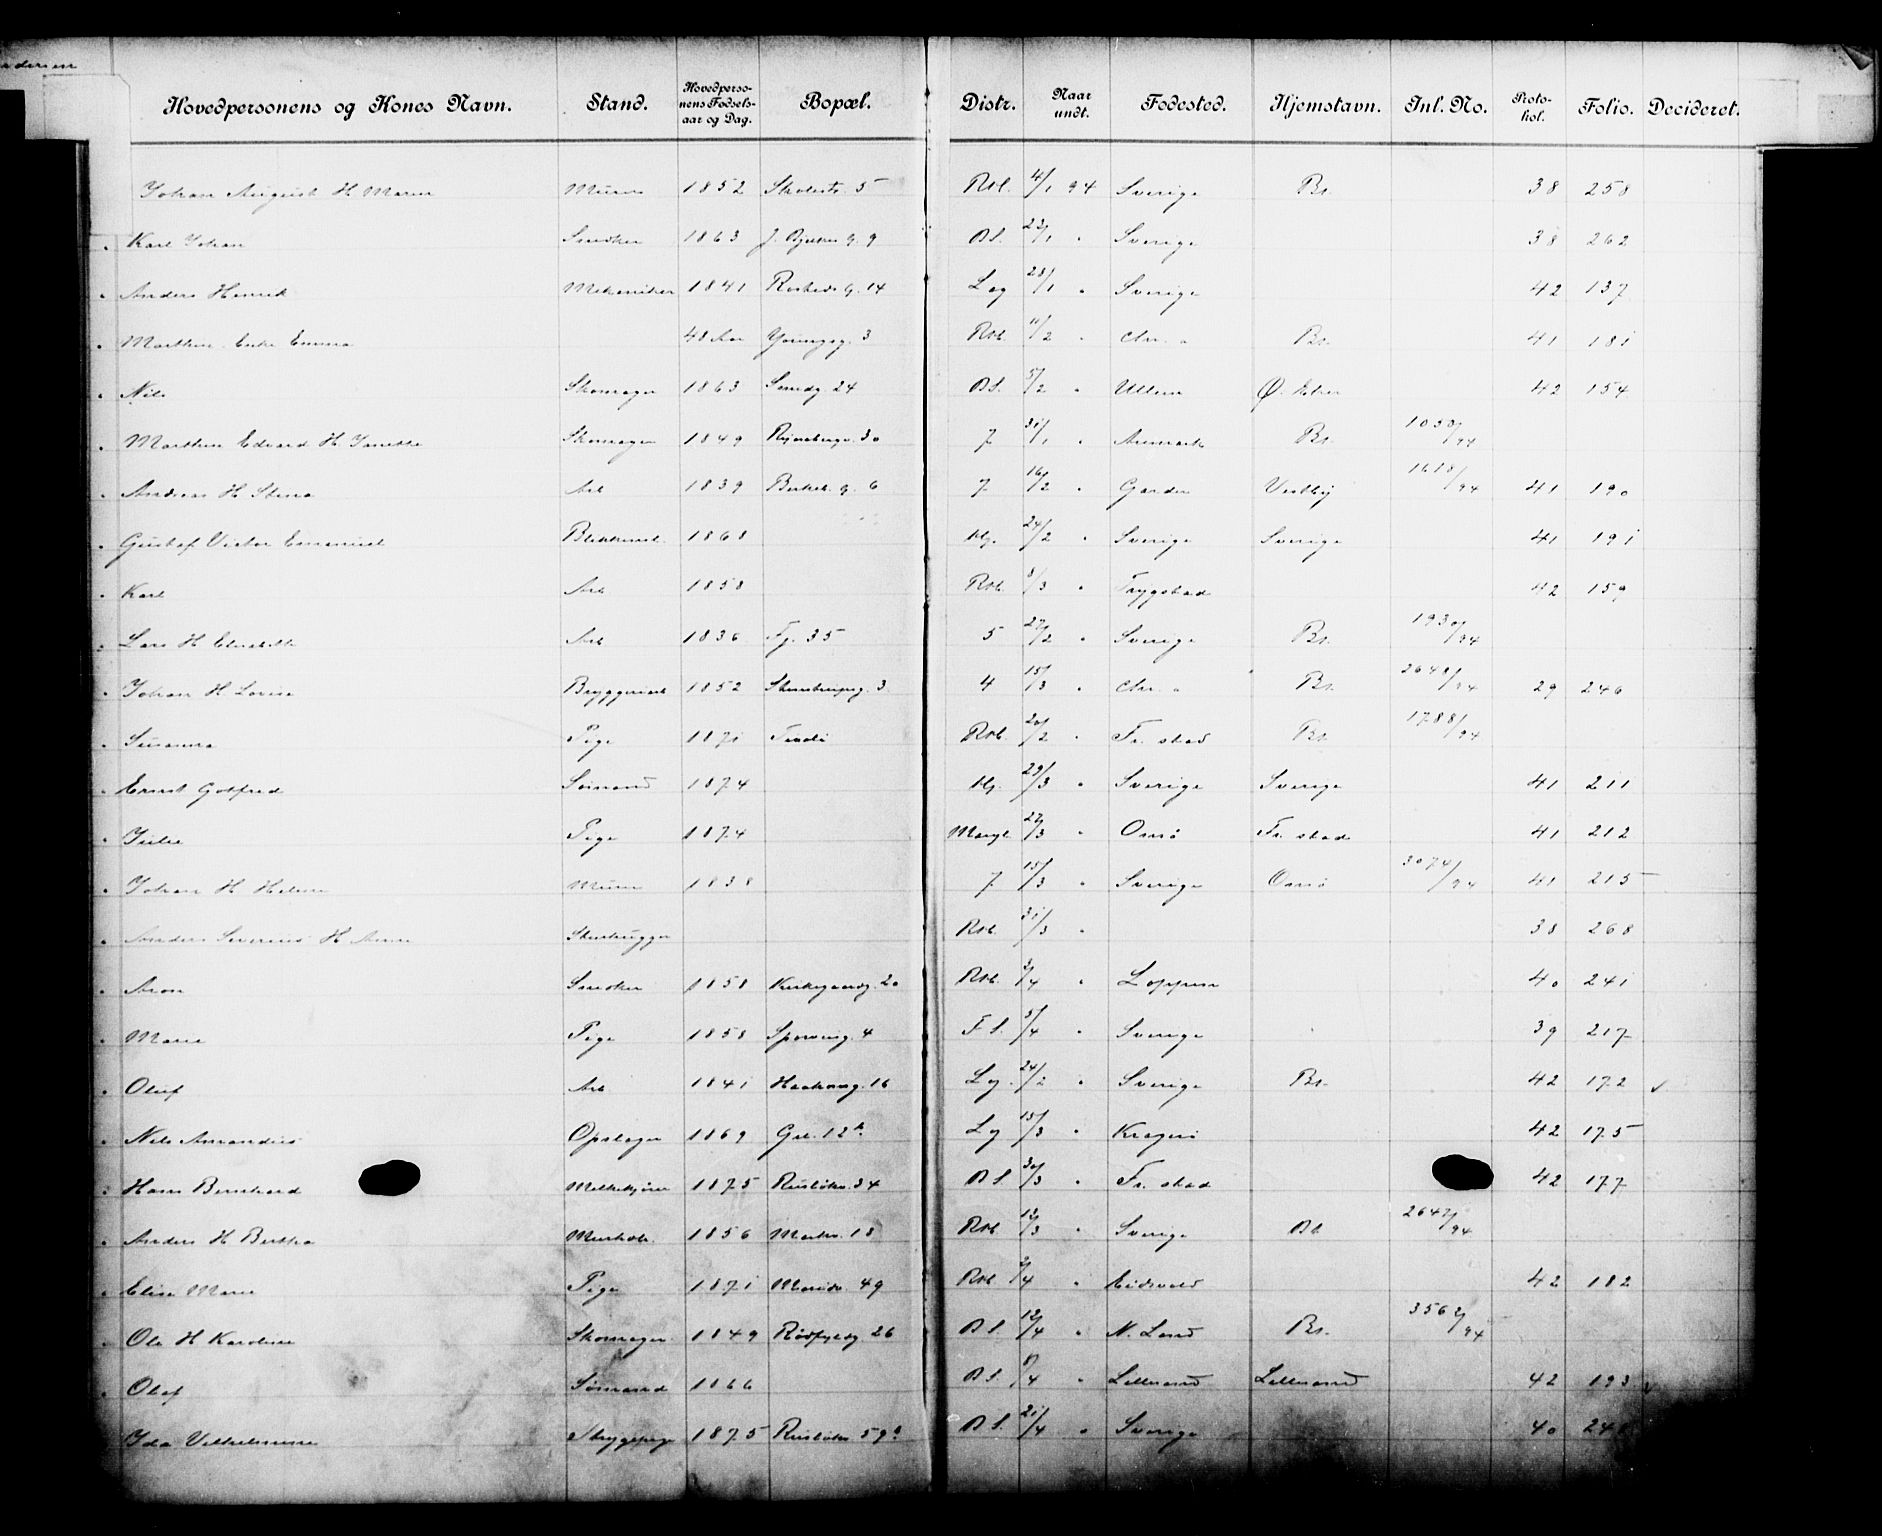 Hovedpersonens og Kones Navn. Stand. Hovedperso-nens Fødsels-aar og Dag. Bopæl. Distr. Naar undt. Fødested. Hjemstavn. Inl. No. Proto-kol. Folio. Decideret.
Johan August H. Maren Murer 1852 5 Rst. 4/1 94 Sverige Bs. 38 258
" Karl Johan Snedker 1863 J. Bjelkes g. 9 B.S. 23/1 " Sverige 38 262
" Anders Henrik Mekaniker 1841 14 Log 28/1 " Sverige 42 137
" Marthea Enke Emma 48 Aar Youngsg. 3 Rst. /2 " Chr. a Bs. 41 181
" Nils Skomager 1863 24 B.S. 5/2 " Ullern 42 154
" Marthin Edvard H. Janette Skomager 1849 30 7. 31/1 " Aremark Bs. 1050/94
" Andreas H. Stina Arb 1839 6 7. 16/2 " Garder Vestby 1618/94 41 190
" Gustaf Victor Emanuel Blikkensl. 1868 24/2 " Sverige Sverige 41 191
" Karl Arb 1858 Rst. 8/3 " Trygstad 42 159
" Lars H. Elisabeth Arb 1836 Fj. 35 5 27/2 " Sverige Bs. 1930/94
" Johan H. Lovise Bryggeriarb 1852 Steenstrupsg. 3 4 15/3 " Chr. a Bs. 2648/94 29 246
" Susanna Pige 1871 Rst. 20/2 " Fr. stad Bs. 1788/94
" Ernst Gotfred Sømand 1874 23/3 " Sverige Sverige 41 211
" Julie Pige 1874 27/3 " Onsø Fr. stad 41 212
" Johan H. Helene Murer 1838 7. 15/3 " Sverige Onsø 3074/94 41 215
" Anders Severius H. Anne Stenhugger Rst. 31/3 " 38 268
" Aron Snedker 1858 Kirkegaardg. 20 Rst. 3/4 " Loppen 40 241
" Marie Pige 1858 Sporveisg. 4 F.S. 5/4 " Sverige 39 217
" Oluf Arb 1841 Haakonsg. 16 Log. 24/2 " Sverige Bs. 42 172
" Nils Amandus Opslager 1869 12 a. Log 15/3 " Kragerø 42 175
" Hans Bernhard Melkekjører 1875 Ruseløkv. 34 B.S. 30/3 " Fr. stad 42 177
" Anders H. Bertha Murhdl. 1856 Markv. 18 Rst. 13/3 " Sverige Bs. 2642/94
" Elise Marie Pige 1871 Maridv. 49 Rst. /4 " Eidsvold 42 182
" Ole H. Karoline Skomager 1849 Rødfyldg 26 B.S. 12/4 " N. Land Bs. 3562/94
" Olaf Sømand 1866 B.S. /4 " Lillesand Lillesand 42 193
" Ida Vilhelmine Strygepige 1875 Ruseløkv 59 b B.S. 21/4 " Sverige 40